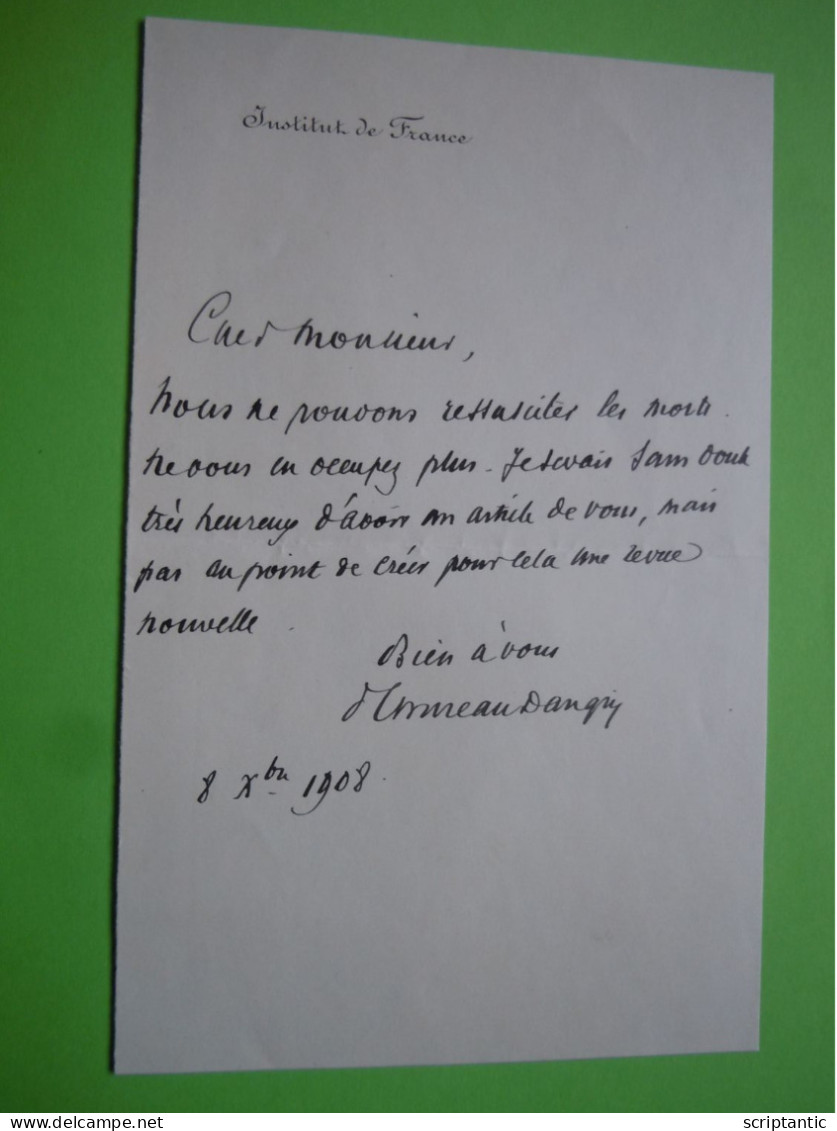 Institut de France
Cher Monsieur,
Nous ne pouvons ressusciter les morts.
Ne vous en occupez plus. Je serais sans doute
très heureux d'avoir un article de vous, mais
pas au point de créer pour cela une revue
nouvelle.
Bien à vous
Thureau Dangin
8 Xbre 1908.
scriptantic